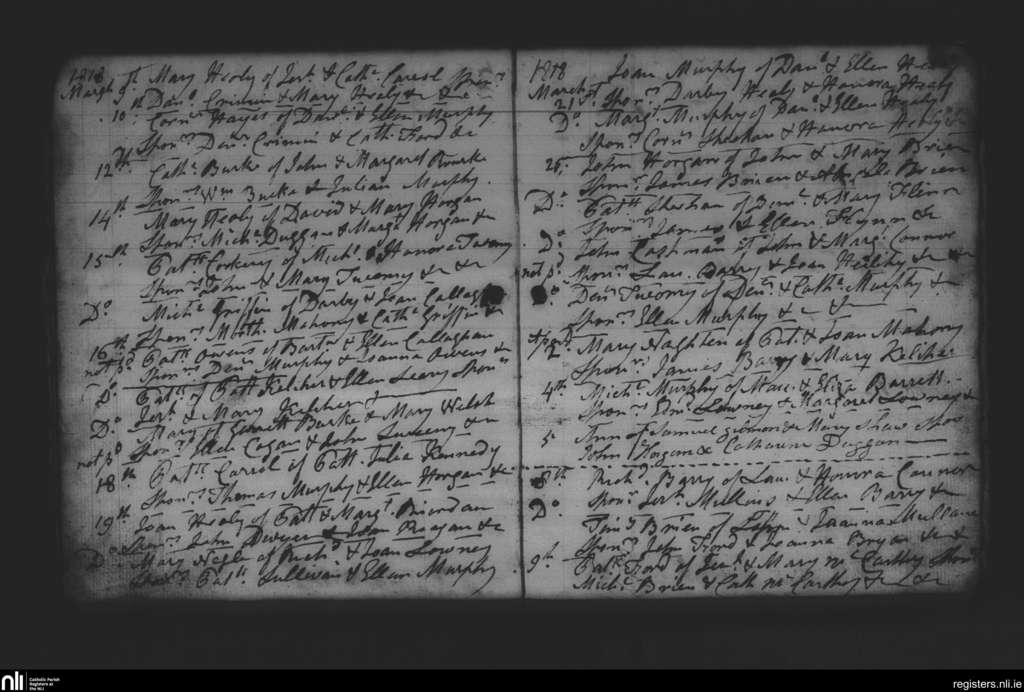 1818
March 9th Mary Healy of Jerh. & Cathe. Carrol Sponrs
Danl. Crimin & Mary Healy &c &c
10th Corns. Hayes of Danl. & Ellen Murphy
Sponrs Denis Crimin & Cath. Ford &c
12th Cathe. Burke of John & Margaret Rourke
Sponrs Wm Burke & Julian Murphy
14th Mary Healy of David & Mary Horgan
Sponrs Michl. Duggan & Margt. Horgan &c
15th Patk. Corkery of Michl. & Honora Twomy
Sponrs John & Mary Twomy &c &c
Do Michl. Griffin of Darby & Joan Callaghan
Sponrs Mathw. Mahony & Cathe. Griffin &c
16th Patk. Owens of Bartw. & Ellen Callaghan
not pd Sponrs Denis Murphy & Joanna Owens &c
Do Patk. of Patt Keliher & Ellen Leary Sponrs
Jerh. & Mary Keliher
Do Mary of Garrett Burke & Mary Welsh
not pd Sponrs Ellen Cogan & John Sweeny &c
18th Patk. Carrol of Patt. Julia Kennedy
Sponrs Thomas Murphy & Ellen Horgan &c
19th Joan Healy of Patt & Margt. Riordan
Sponrs John Dwyer & Joan Reagan &c
Do Mary Nagle of Richd. & Joan Lowney
Sponrs Patk. Sullivan & Ellen Murphy
1818
Joan Murphy of Danl. & Ellen Healy
March 21st Sponrs Darby Healy & Honora Healy
Do Margt. Murphy of Danl. & Ellen Healy
Sponrs Corns. Sheehan & Honora Healy
25 John Horgan of John & Mary Brien
Sponrs James Brien & Brien
Do Patk. Sheehan of Danl. & Mary Flinn
Sponrs James & Ellen Flynn &c
Do John Cashman of John & Marg. Connor
not pd Sponrs Law. Barry & Joan Healihy &c &c
Do Denis Twomy of Denis & Cathe. Murphy &
Sponrs Ellen Murphy & &
April 2d Mary Naghten of Pat. & Joan Mahony
Sponrs James Barry & Mary Keliher
4th Michl. Murphy of Mau. & Eliza Barrett
Sponrs Edmd. Lowney & Margaret Lowney &
5 Ann of Samuel & Mary Shaw Spon
John Horgan & Catharine Duggan
8th Richd. Barry of Law & Honora Connor
Sponrs Jerh. Mullins & Ellen Barry &c
Do Timy. Brien of & Joanna Mullane
Sponrs John Ford & Joanna Bryan &c &
9th Patk. Ford of Jerh. & Mary Mc Carthy Sponrs
Michl. Brien & Cath Mc Carthy &c &c
nli
Catholic Parish
Registers at
the NLI
registers.nli.ie